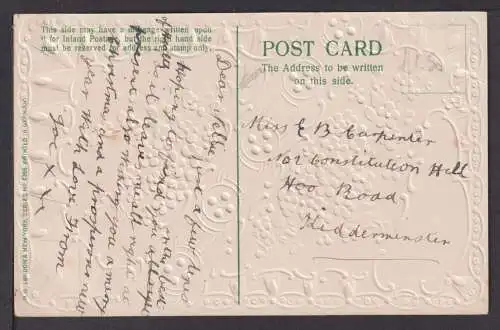 This side may have a message written upon
it for Inland Postage, but the right hand side
must be reserved for address and stamp only.
POST CARD
The Address to be written
on this side.
Miss E B Carpenter
No 2 Constitution Hill
Hoo Road
Kidderminster
Dear Nellie Just a few lines
hoping to find you
as it leaves me all right at
present also wishing you a merry
Christmas and a prosperous new
year with Love From
Joe x x